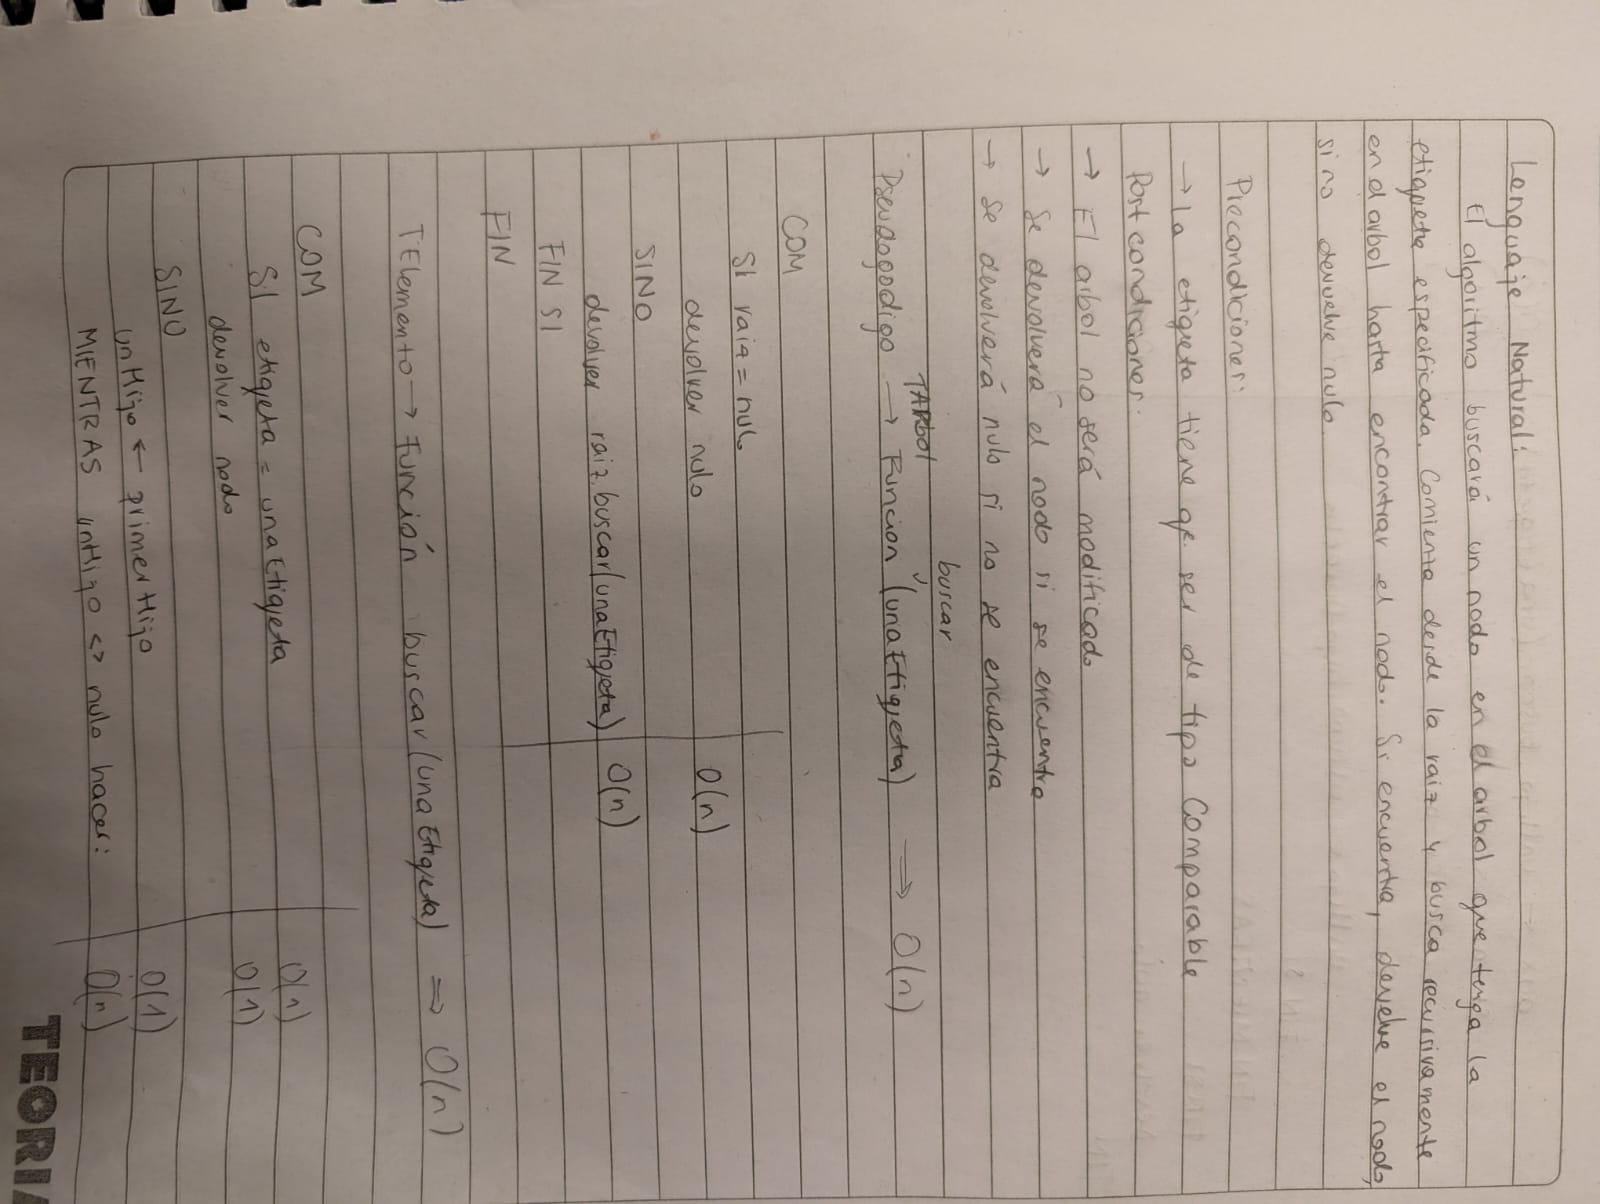 Lenguaje Natural:
El algoritmo buscará un nodo en el arbol que tenga la
etiqueta especificada. Comienta desde la raiz y busca recursivamente
en el arbol harta encontrar el nodo. Si encuentra, devuelve el nodo,
si no devuelve nulo.
Precondiciones:
→ la etiqueta tiene qe. ser de tipo Comparable
Postcondiciones:
→ El arbol no será modificado
→ Se devolverá el nodo si se encuentra
→ se devolverá nulo si no se encuentra
buscar
TARbol
Pseudogodigo → Funcion (unaEtiqueta) ⇒ O(n)
COM
SI raiz = nulo
devolver nulo O(n)
SINO
devolver raiz.buscar(unaEtiqueta) O(n)
FIN SI
FIN
TElemento → Función buscar(unaEtiqueta) ⇒ O(n)
COM
SI etiqueta = unaEtiqueta O(1)
devolver nodo O(1)
SINO
unHijo ← primerHijo O(1)
MIENTRAS unHijo <> nulo hacer: O(n)